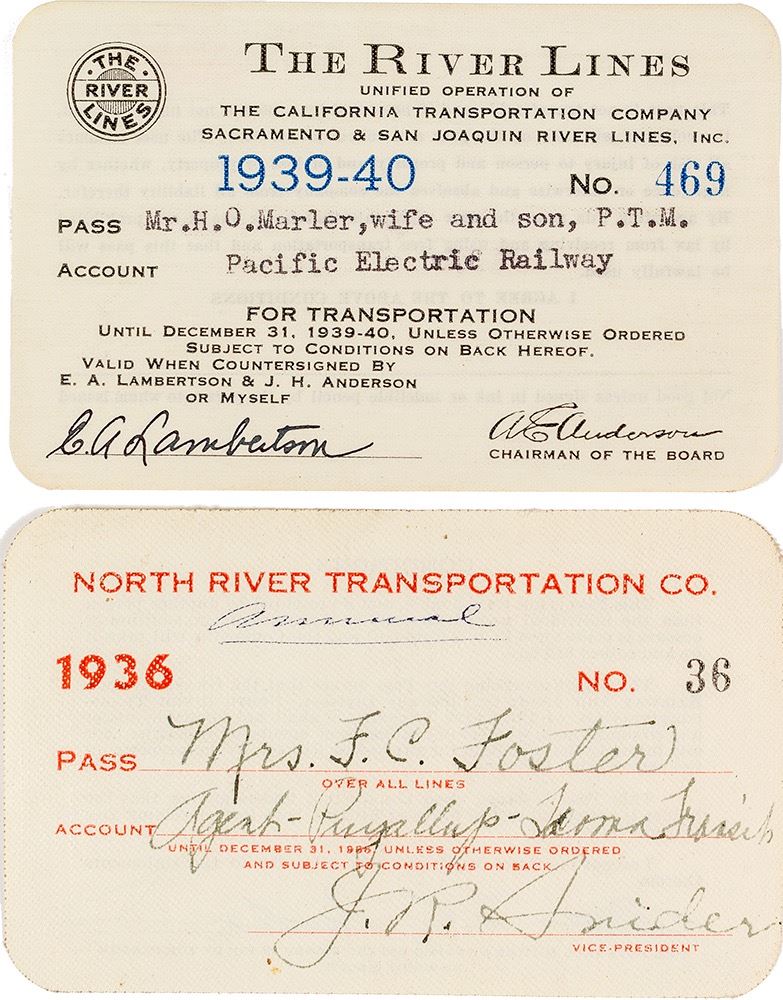 THE RIVER LINES
THE RIVER LINES
UNIFIED OPERATION OF
THE CALIFORNIA TRANSPORTATION COMPANY
SACRAMENTO & SAN JOAQUIN RIVER LINES, INC.
1939-40 NO. 469
PASS Mr.H.O.Marler,wife and son, P.T.M.
ACCOUNT Pacific Electric Railway
FOR TRANSPORTATION
UNTIL DECEMBER 31, 1939-40, UNLESS OTHERWISE ORDERED
SUBJECT TO CONDITIONS ON BACK HEREOF.
VALID WHEN COUNTERSIGNED BY
E. A. LAMBERTSON & J. H. ANDERSON
OR MYSELF
E. A. Lambertson A E Anderson
CHAIRMAN OF THE BOARD
NORTH RIVER TRANSPORTATION CO.
Annual
1936 NO. 36
PASS Mrs. F. C. Foster
OVER ALL LINES
ACCOUNT Agent - Puyallup - Tacoma Transit
UNTIL DECEMBER 31, 1936, UNLESS OTHERWISE ORDERED
AND SUBJECT TO CONDITIONS ON BACK
J. R. Snider
VICE-PRESIDENT